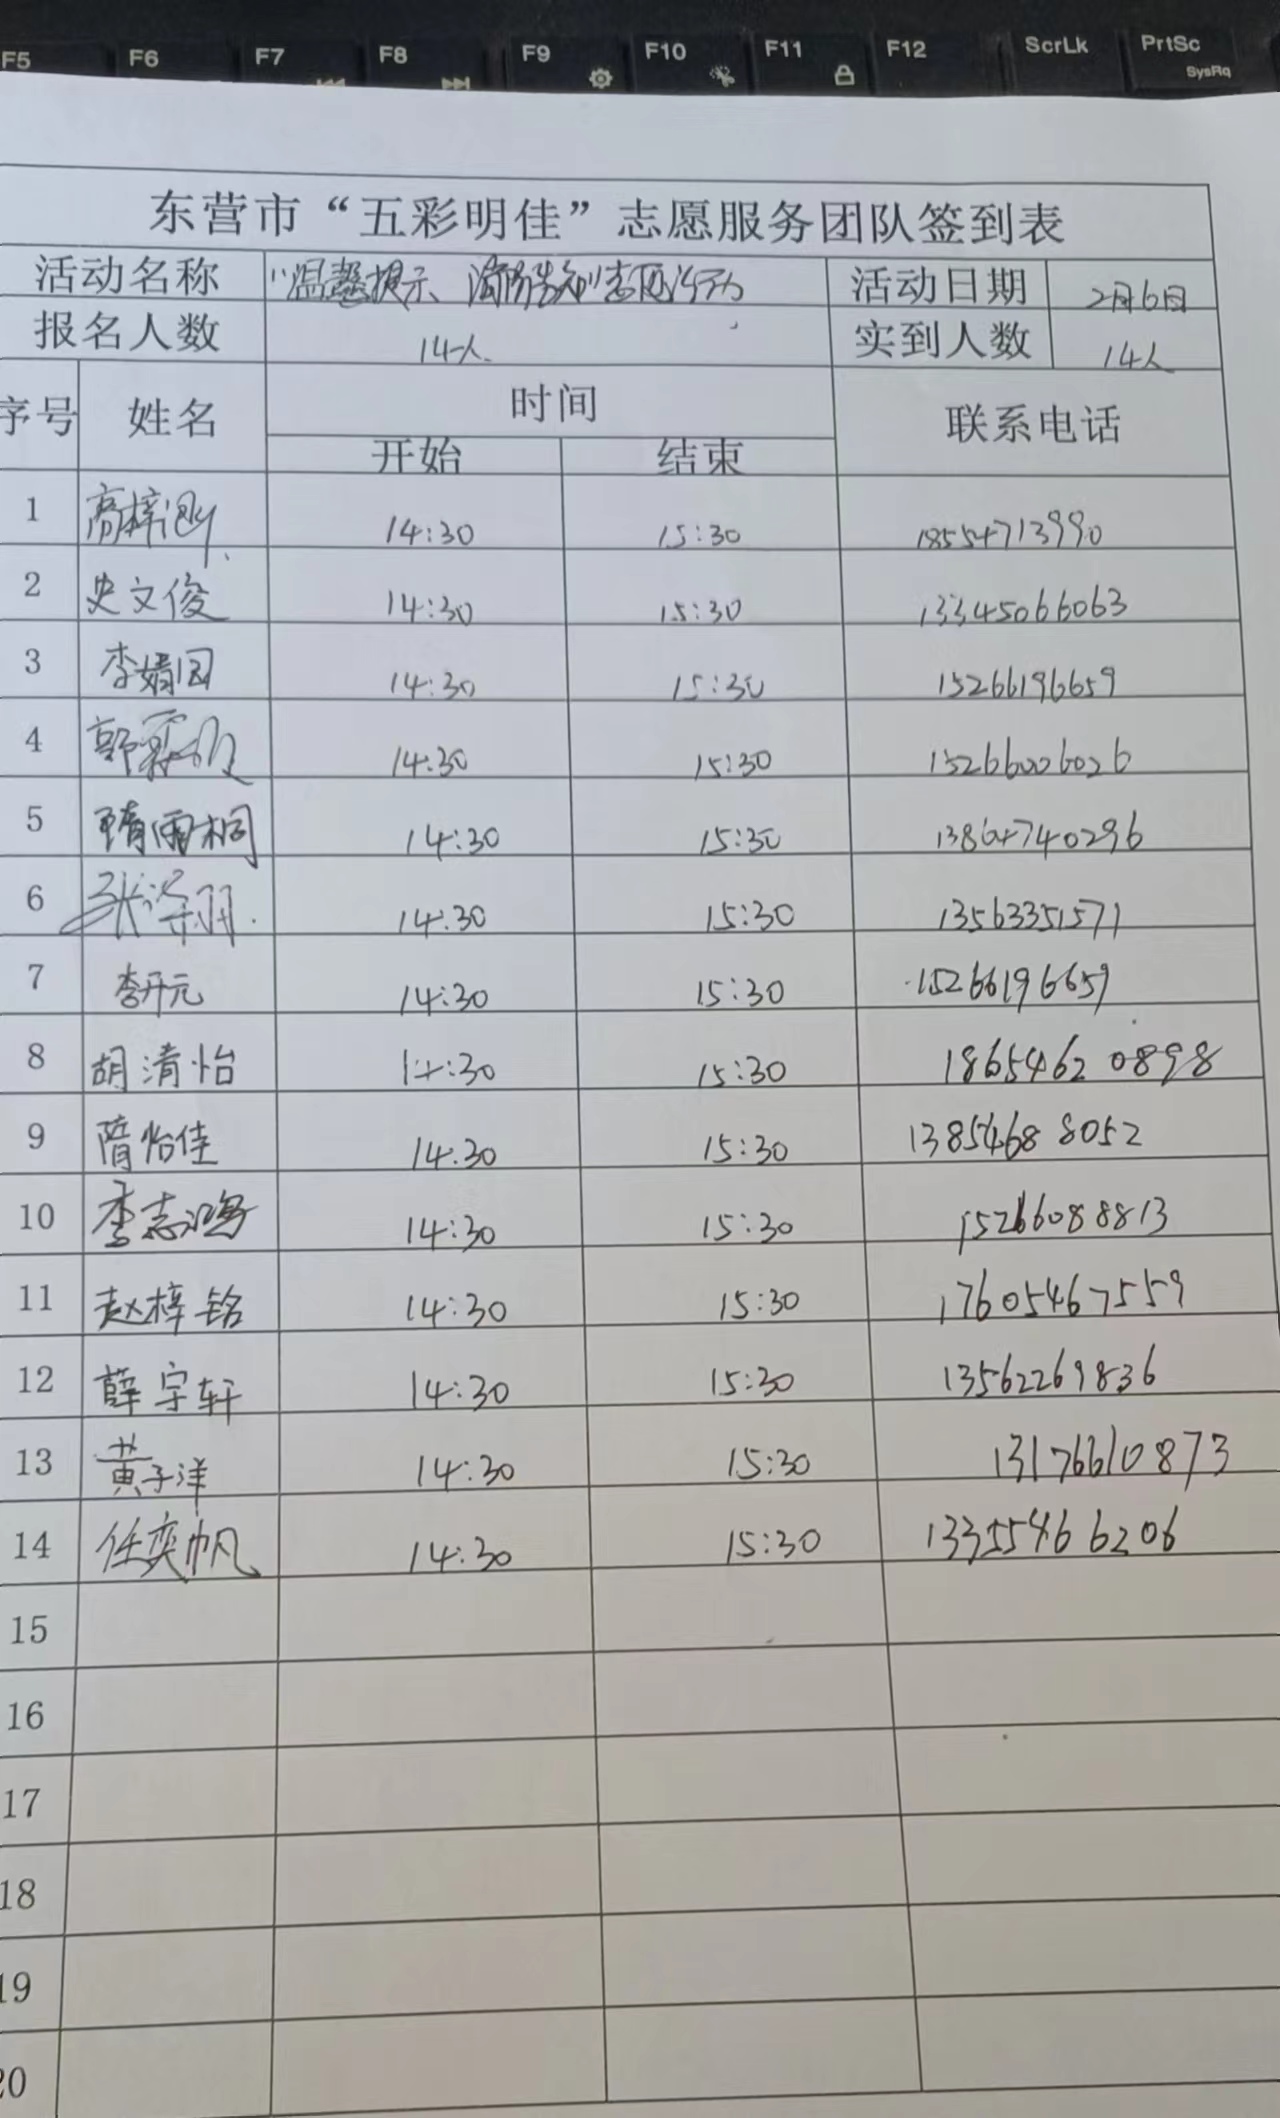 F5 F6 F7 F8 F9 F10 F11 F12 ScrLk PrtSc
SysRq
东营市“五彩明佳”志愿服务团队签到表
活动名称 “温馨提示、消防告知”志愿行动 活动日期 2月6日
报名人数 14人 实到人数 14人
序号 姓名 时间 联系电话
开始 结束
1 高梓 14:30 15:30 18554713990
2 史文俊 14:30 15:30 13345066063
3 李婧园 14:30 15:30 15266196659
4 郭 14:30 15:30 15266006026
5 隋雨桐 14:30 15:30 13864740296
6 张 14:30 15:30 13563351571
7 李开元 14:30 15:30 15266196659
8 胡清怡 14:30 15:30 18654620898
9 隋怡佳 14:30 15:30 13854688052
10 李志鸿 14:30 15:30 15266088813
11 赵梓铭 14:30 15:30 17605467559
12 薛宇轩 14:30 15:30 13562269836
13 黄子洋 14:30 15:30 13176610873
14 任奕帆 14:30 15:30 13355466206
15
16
17
18
19
20